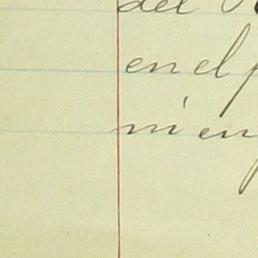 del
en el
ni en